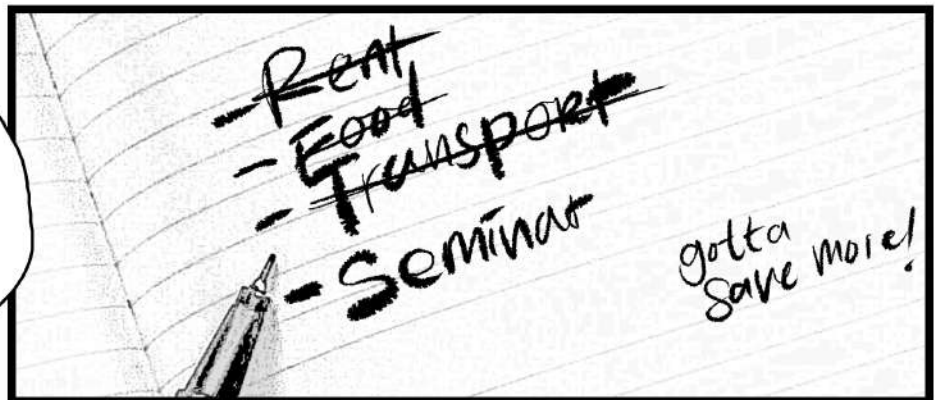 - Rent
- Food
- Transport
- Seminar
gotta
save more!